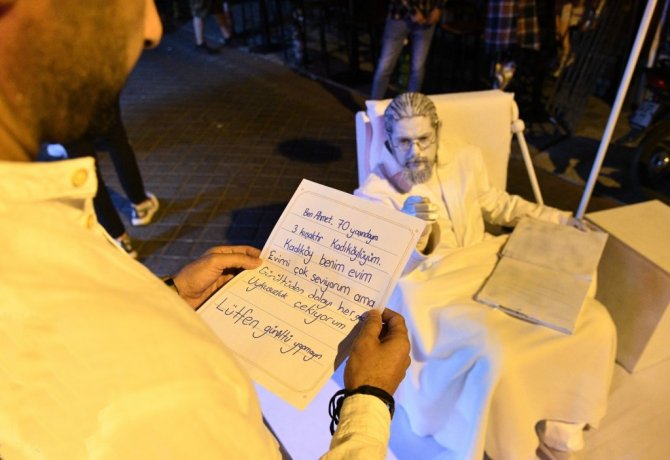 Ben Ahmet. 70 yaşındayım
3 kuşaktır Kadıköylüyüm.
Kadıköy benim evim
Evimi çok seviyorum ama
Gürültüden dolayı her gece
Uykusuzluk çekiyorum
Lütfen gürültü yapmayın